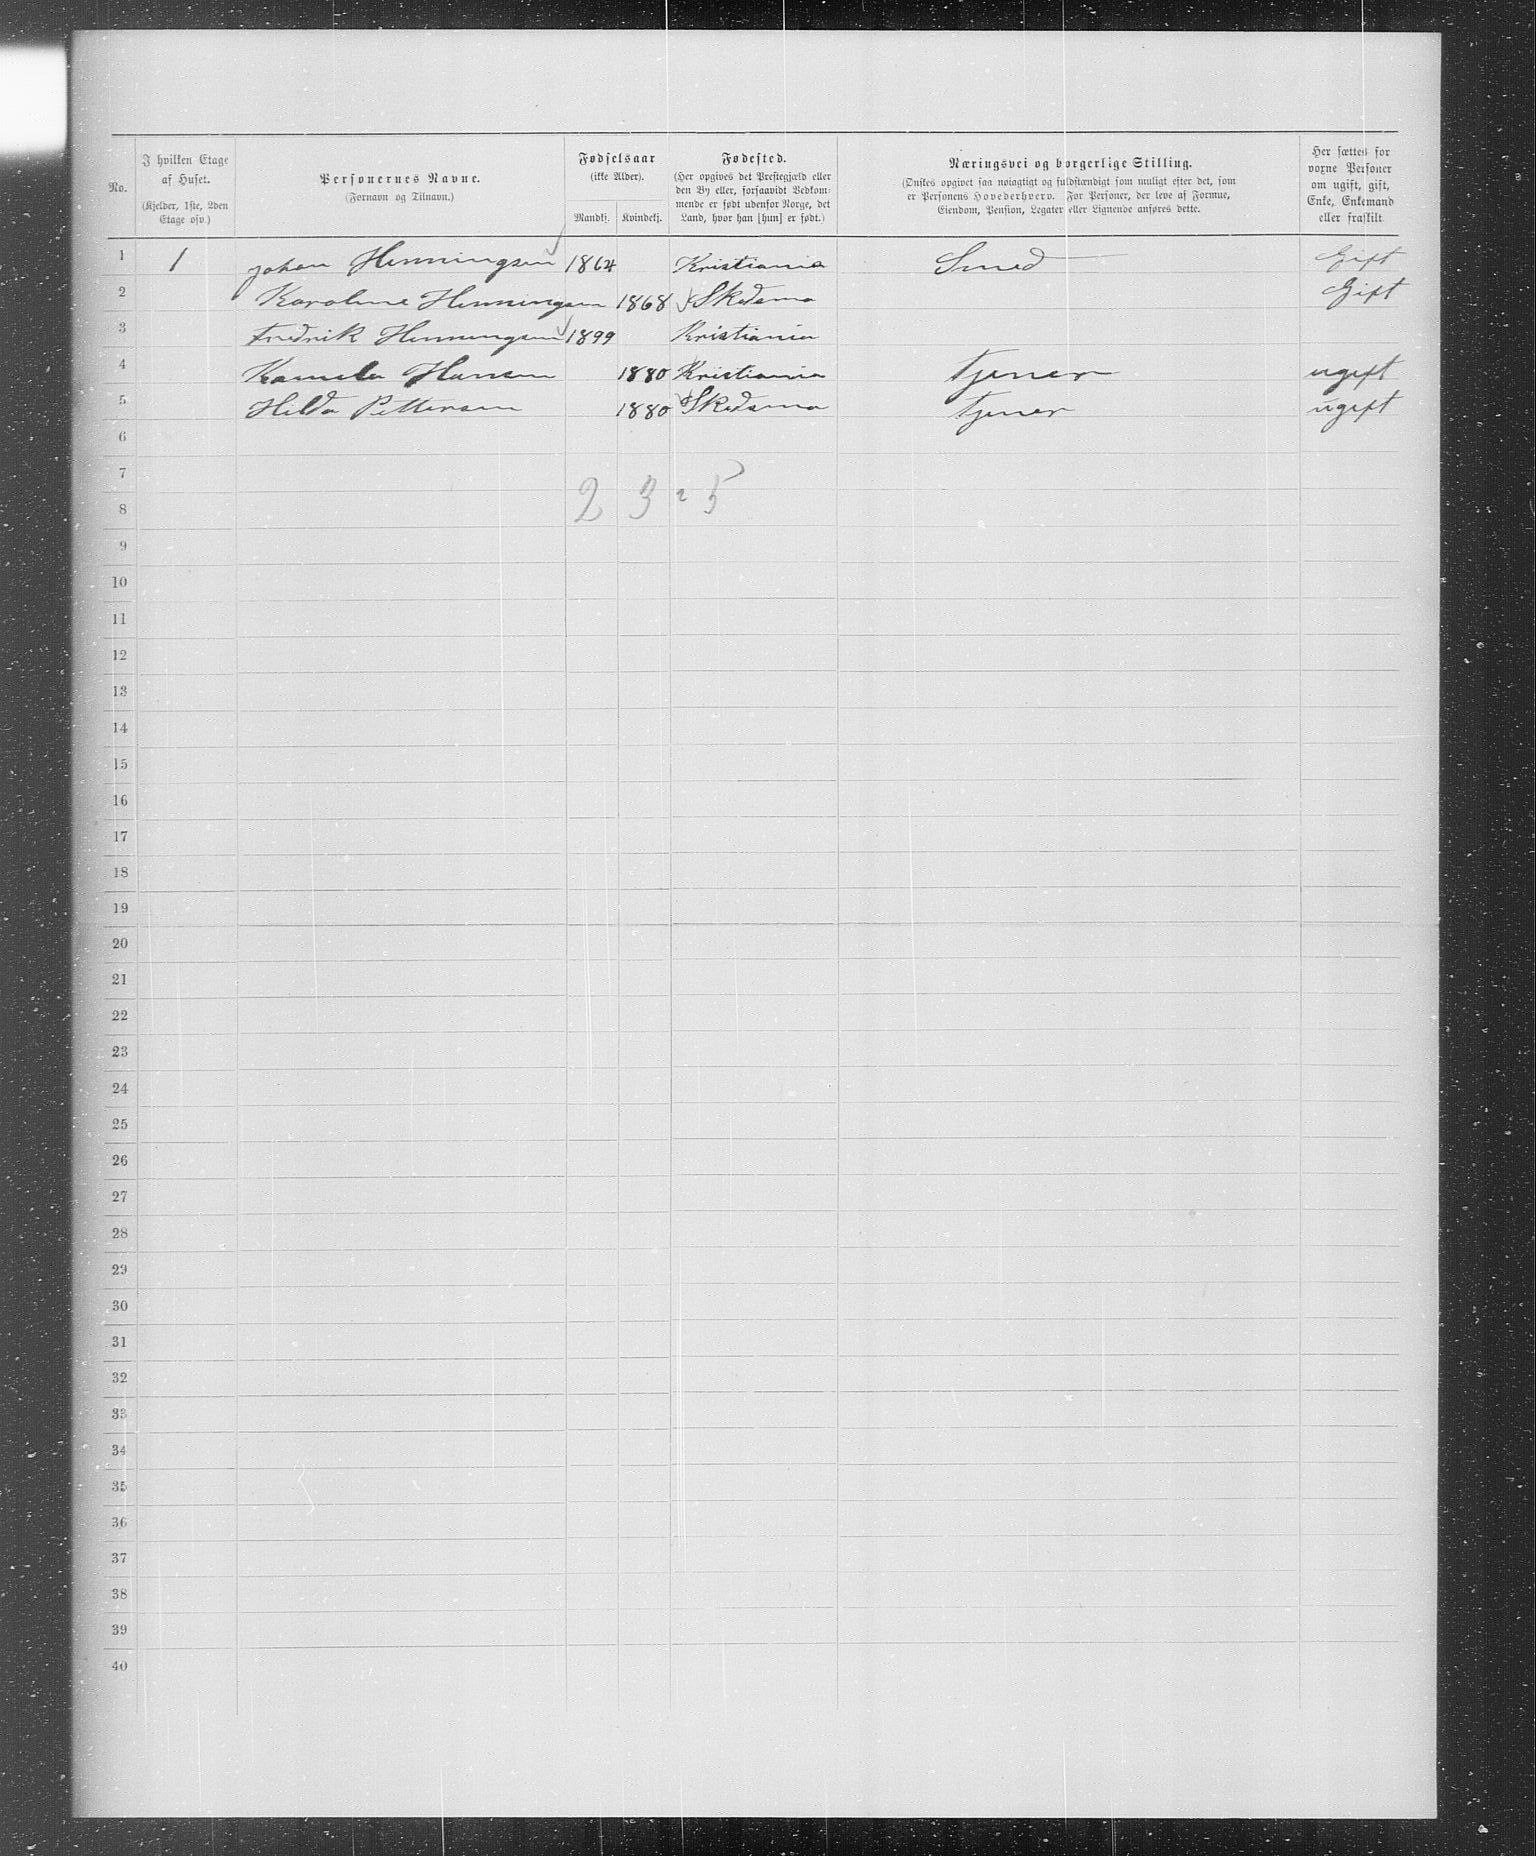 No.
I hvilken Etage af Huset.
(Kjelder, 1ste, 2den Etage osv.)
Personernes Navne.
(Fornavn og Tilnavn.)
Fødselsaar
(ikke Alder).
Mandkj. Kvindekj.
Fødested.
(Her opgives det Prestegjæld eller
den By eller, forsaavidt Vedkom-
mende er født udenfor Norge, det
Land, hvor han [hun] er født.)
Næringsvei og borgerlige Stilling.
(Ønskes opgivet saa nøiagtigt og fuldstændigt som muligt efter det, som
er Personens Hovederhverv. For Personer, der leve af Formue,
Eiendom, Pension, Legater eller Lignende anføres dette.
Her sættes for
voxne Personer
om ugift, gift,
Enke, Enkemand
eller fraskilt
1 1 Johan Henningsen 1864 Kristiania Smed Gift
2 Karoline Henningsen 1868 Skedsmo Gift
3 Fredrik Henningsen 1899 Kristiania
4 Kamela Hansen 1880 Kristiania tjener ugift
5 Hilda Pettersen 1880 Skedsmo tjener ugift
6
7
8 2 3 = 5
9
10
11
12
13
14
15
16
17
18
19
20
21
22
23
24
25
26
27
28
29
30
31
32
33
34
35
36
37
38
39
40